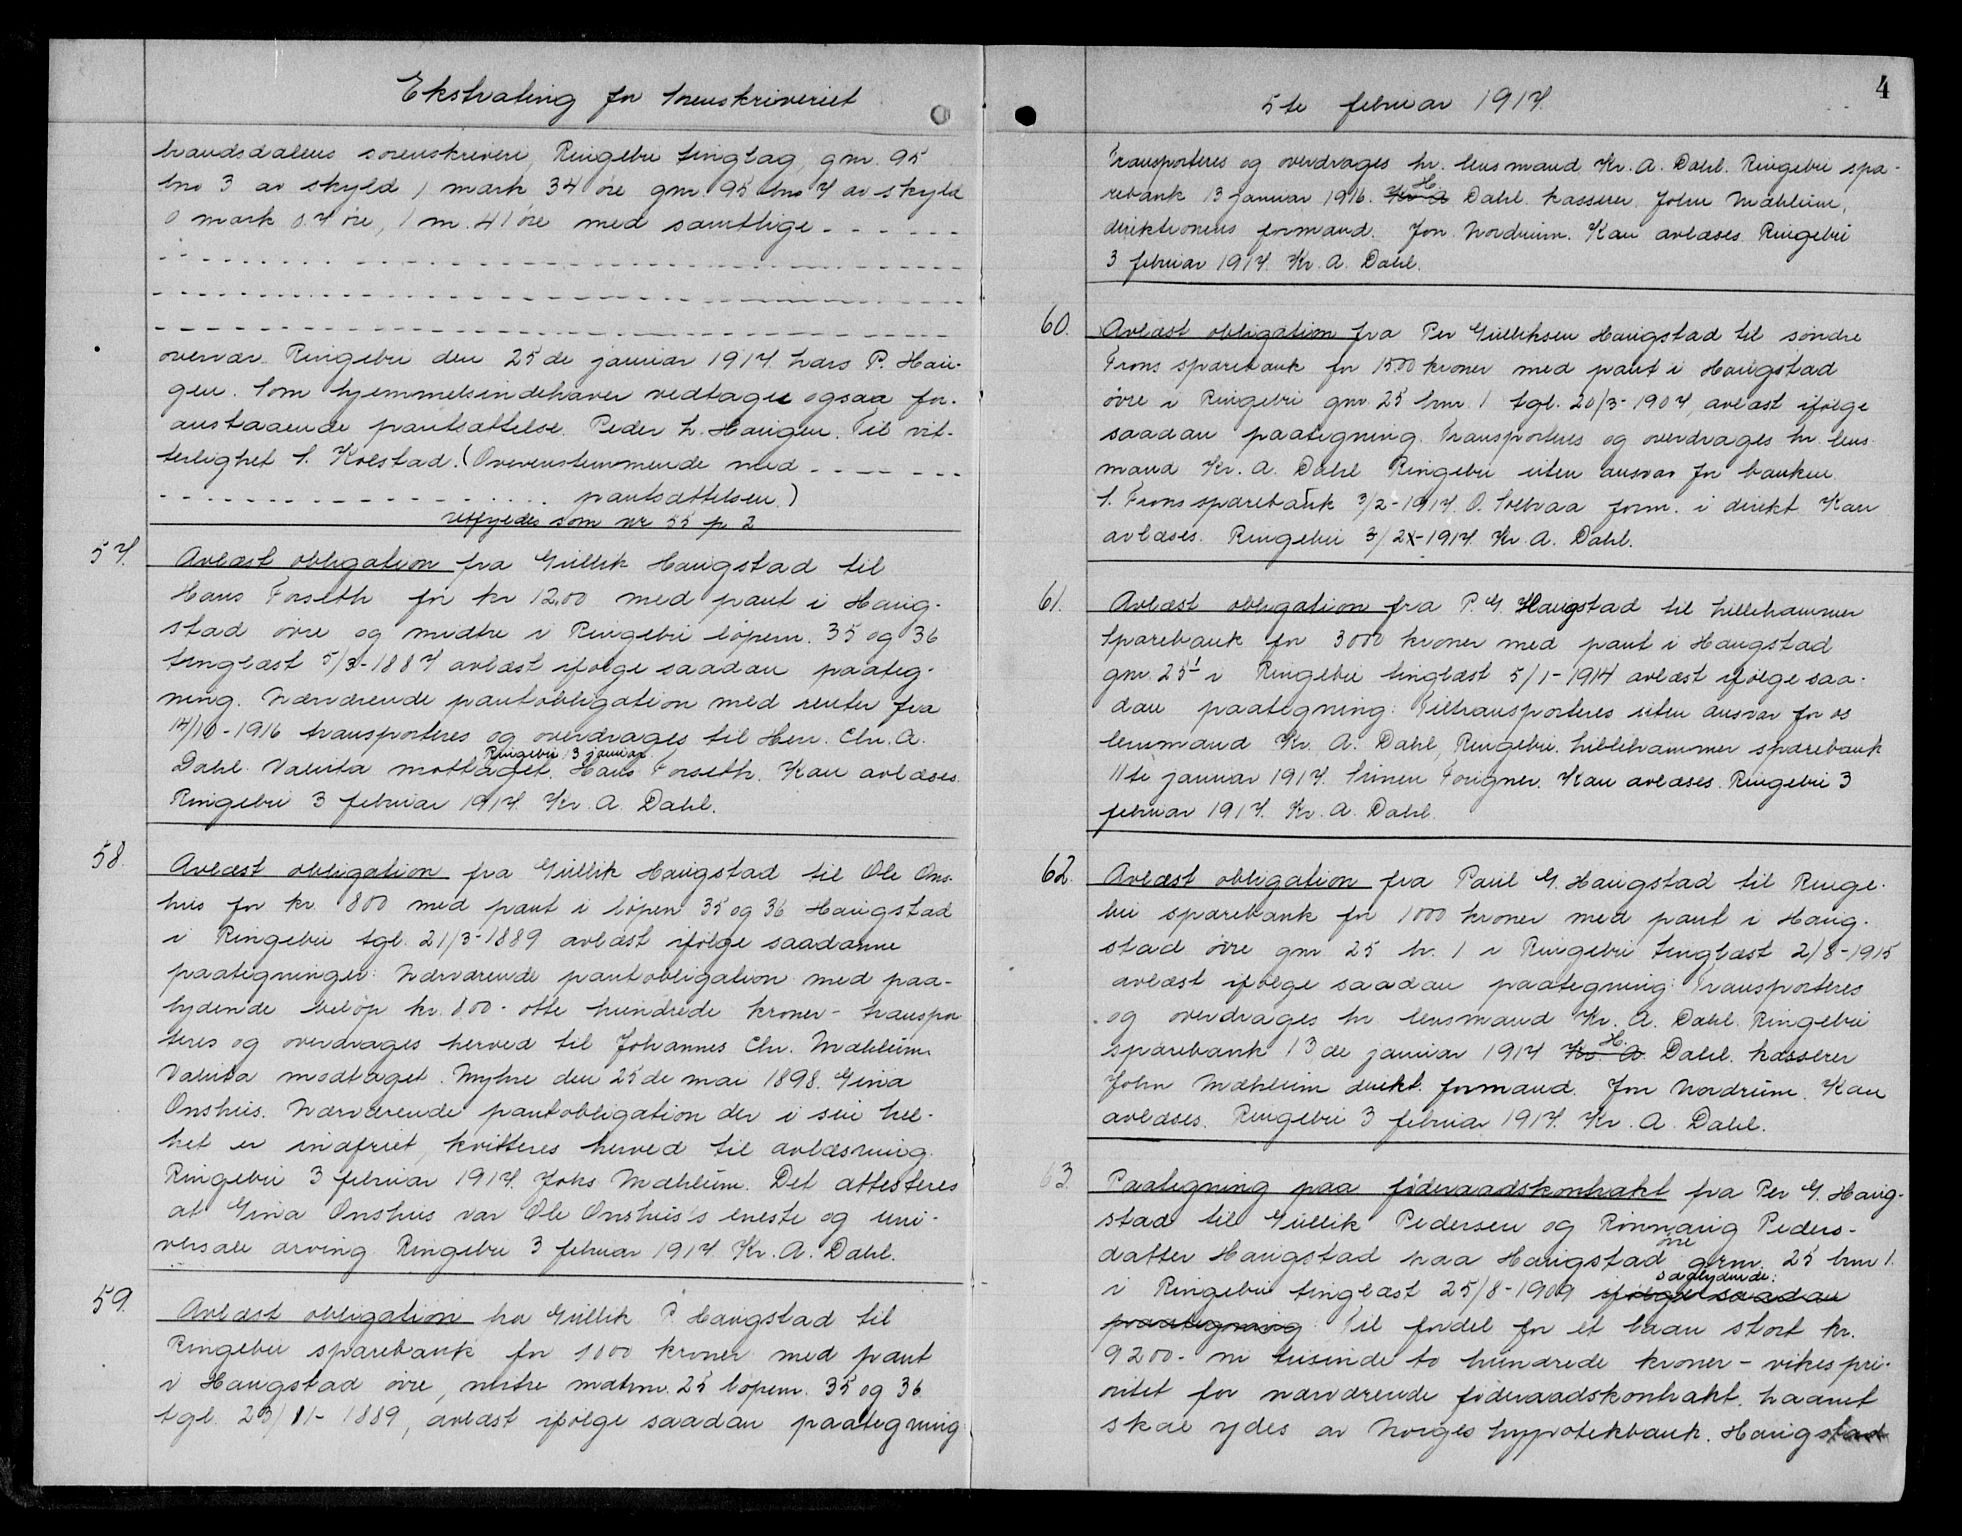 Ekstrating for Sorenskriveriet
brandsdalens sorenskriveri, Ringebu tinglag, gnr. 95
bno 3 av skyld 1 mark 34 øre gnr. 95 bno 7 av skyld
0 mark 07 øre, 1 m. 41 øre med samtlige - - - - - -
overvær. Ringebu den 25de januar 1917. Lars P. Hau-
gen. Som hjemmelsindehaver vedtages ogsaa for-
anstaaende pantsættelse. Peder L. Haugen. Til vit-
terlighet S. Kolstad. (Overensstemmende med - - - - -
- - - - - - pantsættelsen.)
utfyldes som nr 55 p 2
57. Avlæst obligation fra Gullik Haugstad til
Hans Forseth for kr 1200 med pant i Haug-
stad øvre og midtre i Ringebu løpenr. 35 og 36
tinglæst 5/3-1887 avlæst ifølge saadan paateg-
ning. Nærværende pantobligation med renter fra
14/10-1916 transporteres og overdrages til Herr. Chr. A.
Ringebu 3 januar
Dahl. Valuta mottaget. Hans Forseth. Kan avlæses.
Ringebu 3 februar 1917. Kr. A. Dahl.
58. Avlæst obligation fra Gullik Haugstad til Ole Ons-
hus for kr. 800 med pant i løpen 35 og 36 Haugstad
i Ringebu tgl. 21/3-1889 avlæst ifølge saadanne
paategninger: Nærværende pantobligation med paa-
lydende beløp kr. 800 - otte hundrede kroner - transpor
teres og overdrages herved til Johannes Chr. Mæhlum.
Valuta modtaget. Myhre den 25de mai 1898. Gina
Onshus. Nærværende pantobligation der i sin hel-
het er indfriet, kvitteres herved til avlæsning.
Ringebu 3 februar 1917. Johs Mæhlum. Det attesteres
at Gina Onshus var Ole Onshus's eneste og uni-
versale arving Ringebu 3 februar 1917. Kr. A. Dahl.
59. Avlæst obligation fra Gullik P. Haugstad til
Ringebu sparebank for 1000 kroner med pant
i Haugstad øvre, nertre matrnr. 25 løpenr. 35 og 36
tgl. 23/11-1889, avlæst ifølge saadan paategning
5te februar 1917. 4
Transporteres og overdrages hr. lensmand Kr. A. Dahl. Ringebu spa-
H
rebank 13 januar 1916. Kr A Dahl. kasserer. John Mæhlum,
direktionens formand. Jon Nordrum. Kan avlæses Ringebu
3 februar 1917. Kr. A. Dahl.
60. Avlæst obligation fra Per Gulliksen Haugstad til søndre
Frons sparebank for 1500 kroner med pant i Haugstad
øvre i Ringebu gnr. 25 bnr. 1 tgl. 20/3-1907, avlæst ifølge
saadan paategning. Transporteres og overdrages hr. lens
mand Kr. A. Dahl Ringebu uten ansvar for banken.
S. Frons sparebank 3/2-1917. O. Solbraa form. i direkt. Kan
avlæses. Ringebu 3/2-1917. Kr. A. Dahl.
61. Avlæst obligation fra P. G. Haugstad til Lillehammer
Sparebank for 3000 kroner med pant i Haugstad
gnr. 25¹ i Ringebu tinglæst 5/1-1914 avlæst ifølge saa-
dan paategning: Tiltransporteres uten ansvar for os
lensmand Kr. A. Dahl, Ringebu. Lillehammer sparebank
11te januar 1917. Simen Fougner. Kan avlæses. Ringebu 3
februar 1917. Kr. A. Dahl.
62. Avlæst obligation fra Paul G. Haugstad til Ringe-
bu sparebank for 1000 kroner med pant i Haug-
stad øvre gnr 25 br. 1 i Ringebu tinglæst 2/8-1915
avlæst ifølge saadan paategning: Transporteres
og overdrages hr lensmand Kr. A. Dahl. Ringebu
H.
sparebank 13de januar 1917 Kr. A. Dahl. kasserer
John Mæhlum direkt. formand. Jon Nordrum. Kan
avlæses. Ringebu 3 februar 1917. Kr. A. Dahl.
63. Paategning paa føderaadskontrakt fra Per G. Haug-
stad til Gullik Pedersen og Rønnaug Peders-
øvre
datter Haugstad paa Haugstad grnr. 25 bnr 1.
saalydende:
i Ringebu tinglæst 25/8-1909 ifølge saadan
paategning Til fordel for et laan stort kr.
9200- ni tusinde to hundrede kroner - vikes pri-
oritet for nærværende føderaadskontrakt. Laanet
skal ydes av Norges hypotekbank. Haugstad